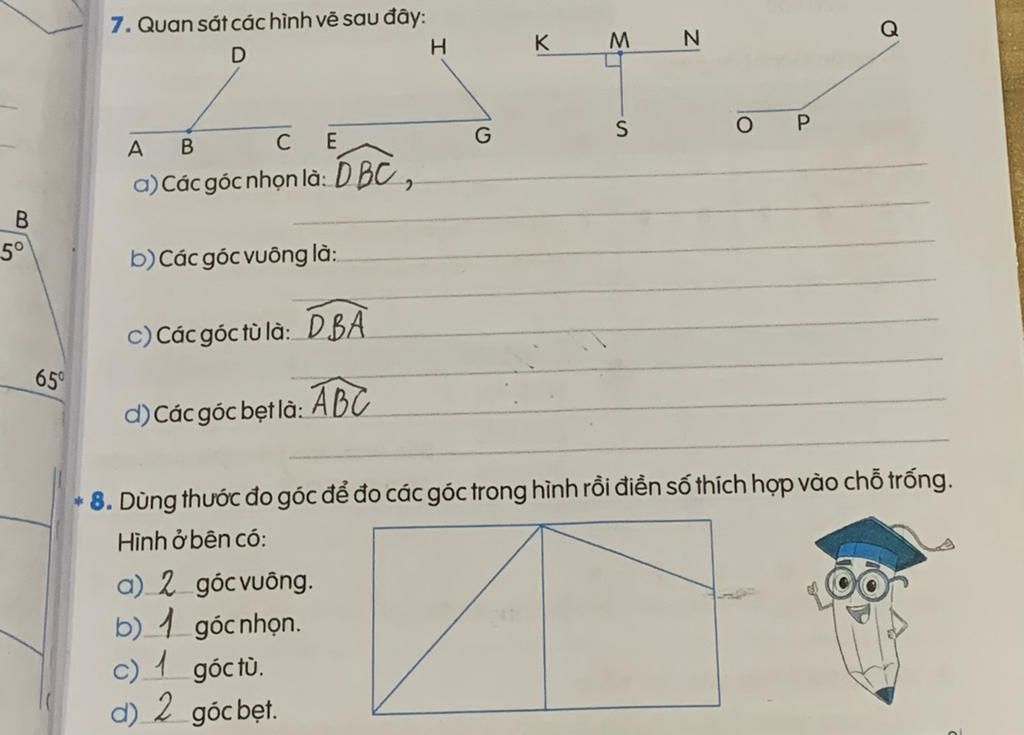 7. Quan sát các hình vẽ sau đây:
D H K M N Q
A B C E G S O P
a) Các góc nhọn là: DBC,
B
5°
b) Các góc vuông là:
c) Các góc tù là: DBA
65°
d) Các góc bẹt là: ABC
* 8. Dùng thước đo góc để đo các góc trong hình rồi điền số thích hợp vào chỗ trống.
Hình ở bên có:
a) 2 góc vuông.
b) 1 góc nhọn.
c) 1 góc tù.
d) 2 góc bẹt.